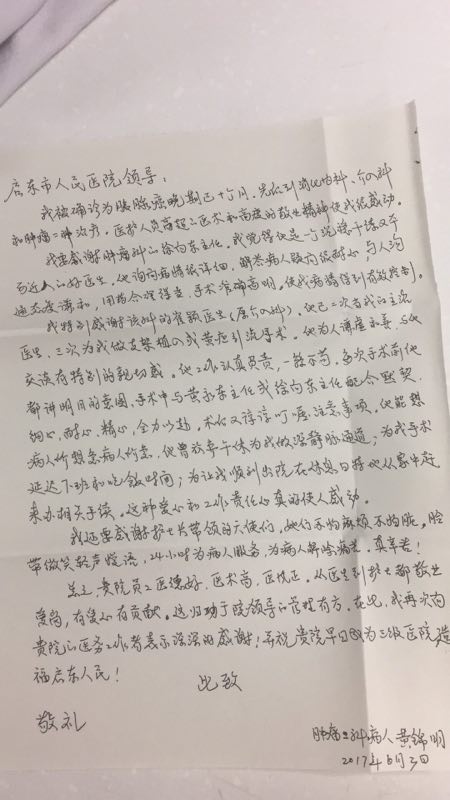 启东市人民医院领导：
我被确诊为胰腺癌晚期已十个月，先后到消化内科、介入科
和肿瘤二科治疗。医护人员高超的医术和高度的敬业精神使我很感动。
我要感谢肿瘤科的徐向东主任。我觉得他是一个说话干练又平
易近人的好医生，他询问病情很详细，解答病人疑问很耐心，与人沟
通态度谦和，用药合理得当，手术准确高明，使我病情得到有效控制。
我特别感谢该科的崔颖医生（原介入科）。他已二次当我的主流
医生，三次为我做支架植入或黄疸引流手术。他为人谦虚和善，与他
交谈有特别的亲切感。他工作认真负责，一丝不苟，每次手术前他
都讲明目的意图，手术中与黄永东主任或徐向东主任配合默契，
细心，耐心，精心，全力以赴，术后又谆谆叮嘱注意事项。他能想
病人所想急病人所急，他曾放弃午休为我做深静脉通道；为我手术
延迟下班和吃饭时间；为让我顺利出院在休息日特地从家中赶
来办相关手续。这种爱心和工作责任心真的使人感动。
我还要感谢护士长带领的天使们，她们不怕麻烦不怕脏。脸
带微笑轻声慢语，24小时为病人服务，为病人解除痛苦。真辛苦！
总之，贵院员工医德好，医术高，医风正。从医生到护士都敬业
爱岗，有爱心有贡献。这归功于院领导的管理有方。在此，我再次向
贵院的医务工作者表示深深的感谢！并祝贵院早日成为三级医院造
福启东人民！
此致
敬礼
肿瘤二科病人黄锦明
2017年6月3日